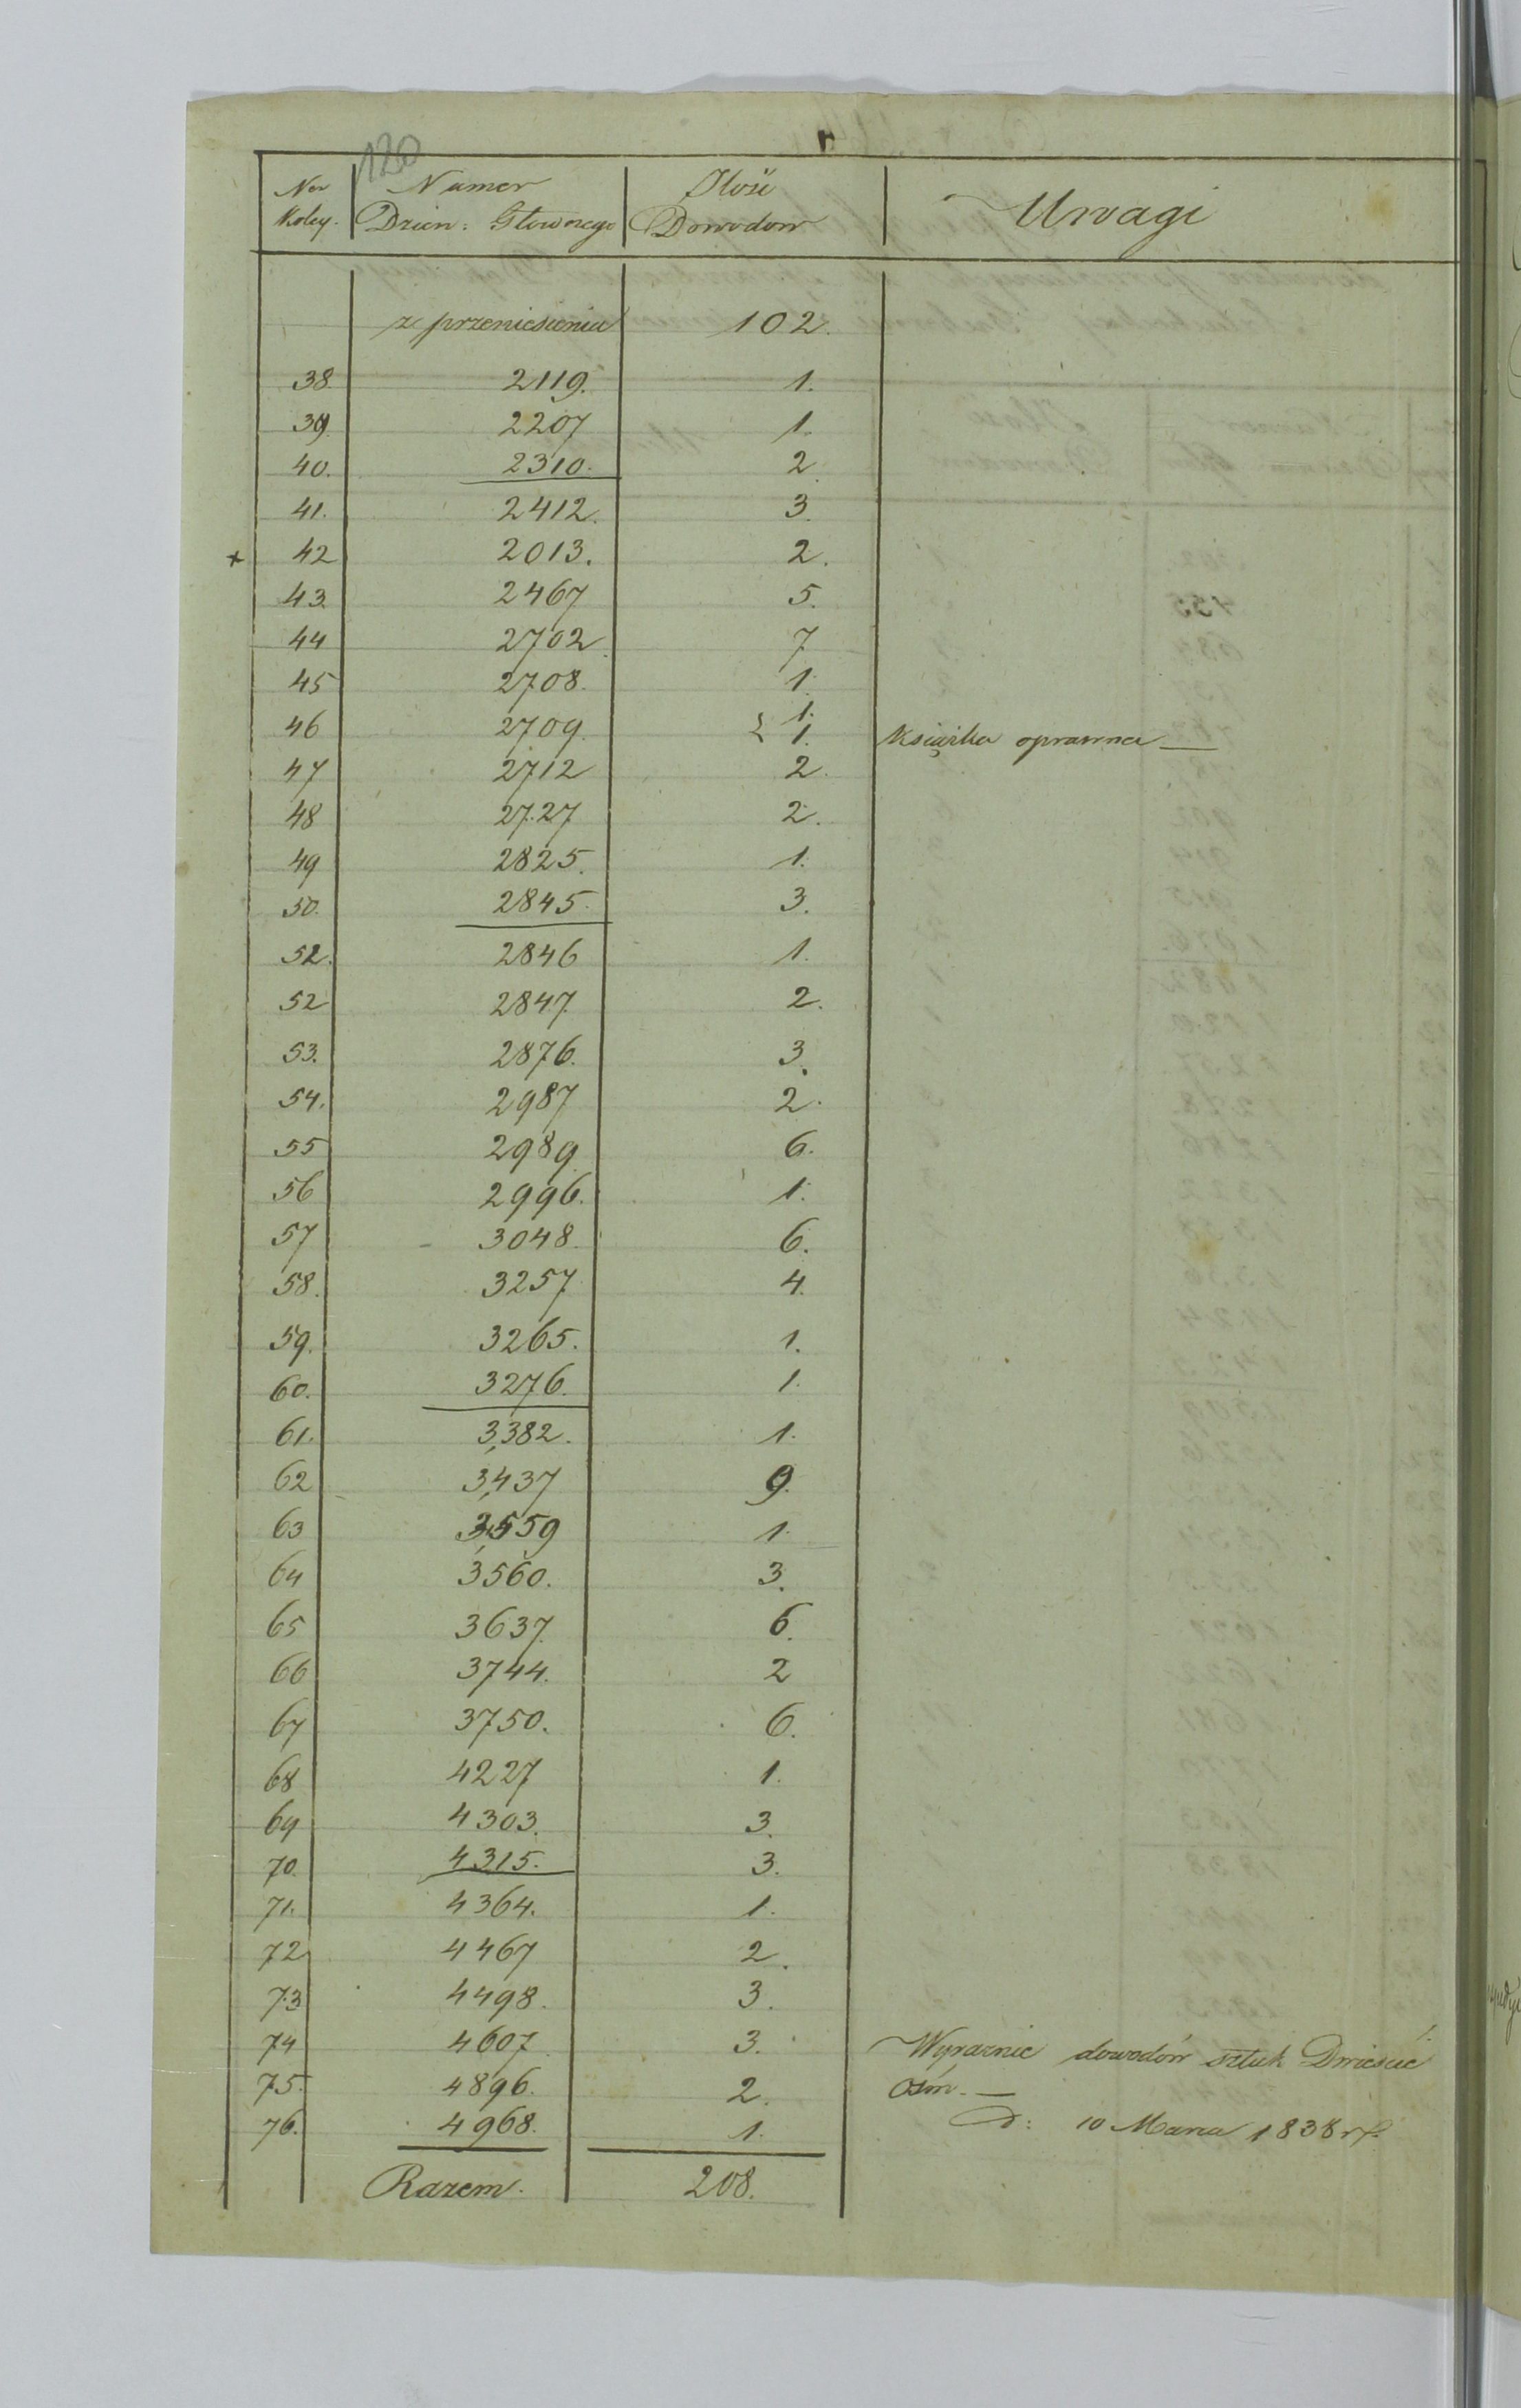 120
Ner Numer Ilość Uwagi
Koley. Dzien: Głownego Dowodow
z przeniesienia 102.
38 2119. 1.
39. 2207 1.
40. 2310. 2.
41. 2412. 3.
+ 42 2013. 2.
43. 2467 5.
44 2702. 7
45 2708. 1.
1.
46 2709. { 1. Książka oprawna —
47 2712 2.
48 2727 2.
49 2825. 1.
50. 2845. 3.
52. 2846 1.
52 2847. 2.
53. 2876. 3.
54. 2987 2.
55 2989 6.
56 2996. 1.
57 3048. 6.
58. 3257 4.
59. 3265. 1.
60. 3276. 1.
61. 3382. 1.
62 3437 9.
63 3559 1.
64 3560. 3.
65 3637. 6.
66 3744. 2
67 3750. 6.
68 4227 1.
69 4303. 3.
70. 4315. 3.
71. 4364. 1.
72 4467 2.
73 4498. 3.
74 4607 3. Wyraznie dowodów sztuk Dwieście
75. 4896. 2. Osm. —
76. 4968. 1. d: 10 Marca 1838 r
Razem. 208.